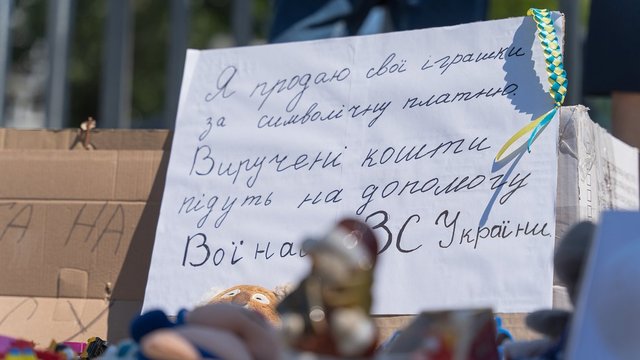 Я продаю свої іграшки
за символічну платню.
Виручені кошти
підуть на допомогу
ЗС України
НА